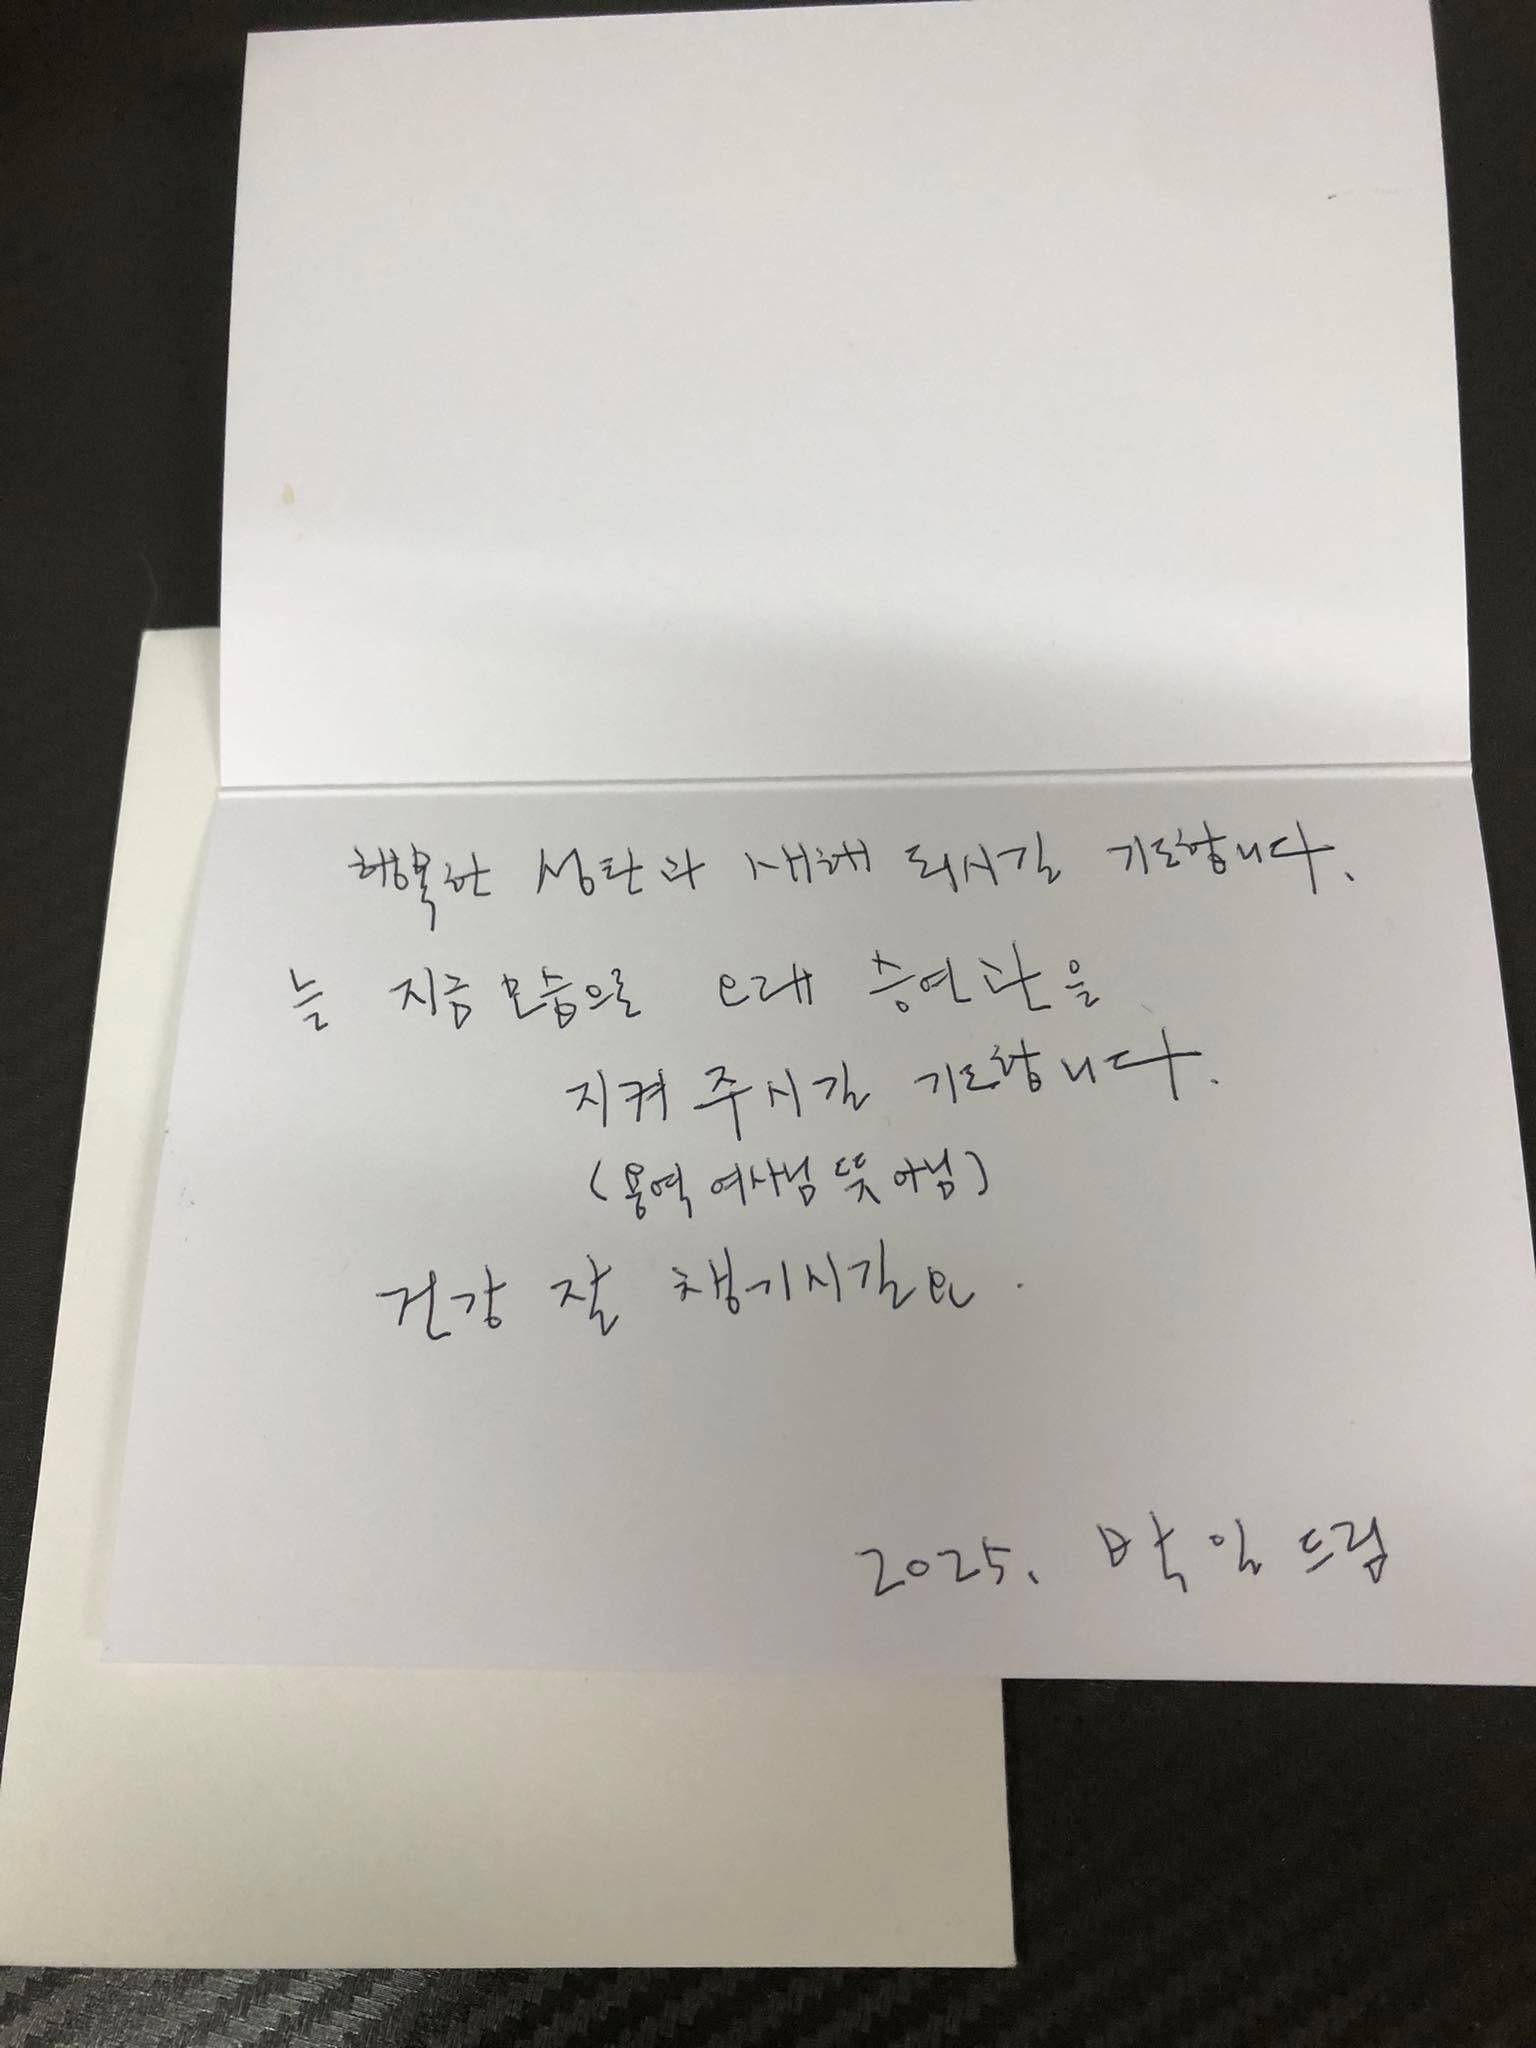 행복한 성탄과 새해 되시길 기도합니다.
늘 지금 모습으로 오래 승연관을
지켜 주시길 기도합니다.
(용역 여사님 뜻 아님)
건강 잘 챙기시길요.
2025. 박일 드림